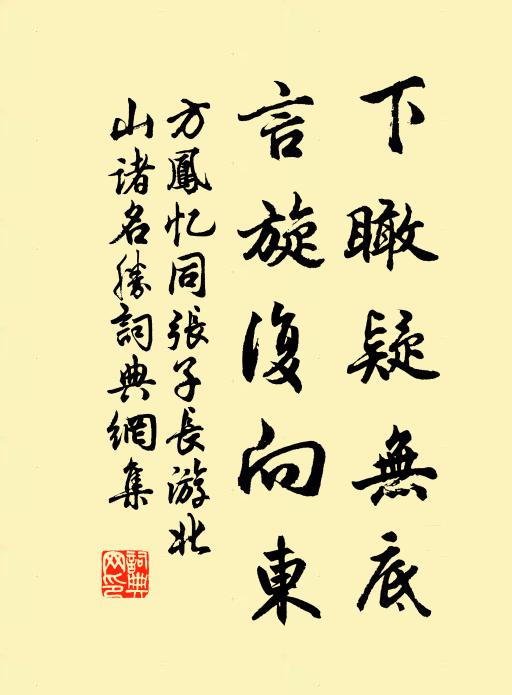 下瞰疑無底
言旋復向東
方鳳忆同張子長游北
山诸名勝詞典網集
詞典
网印